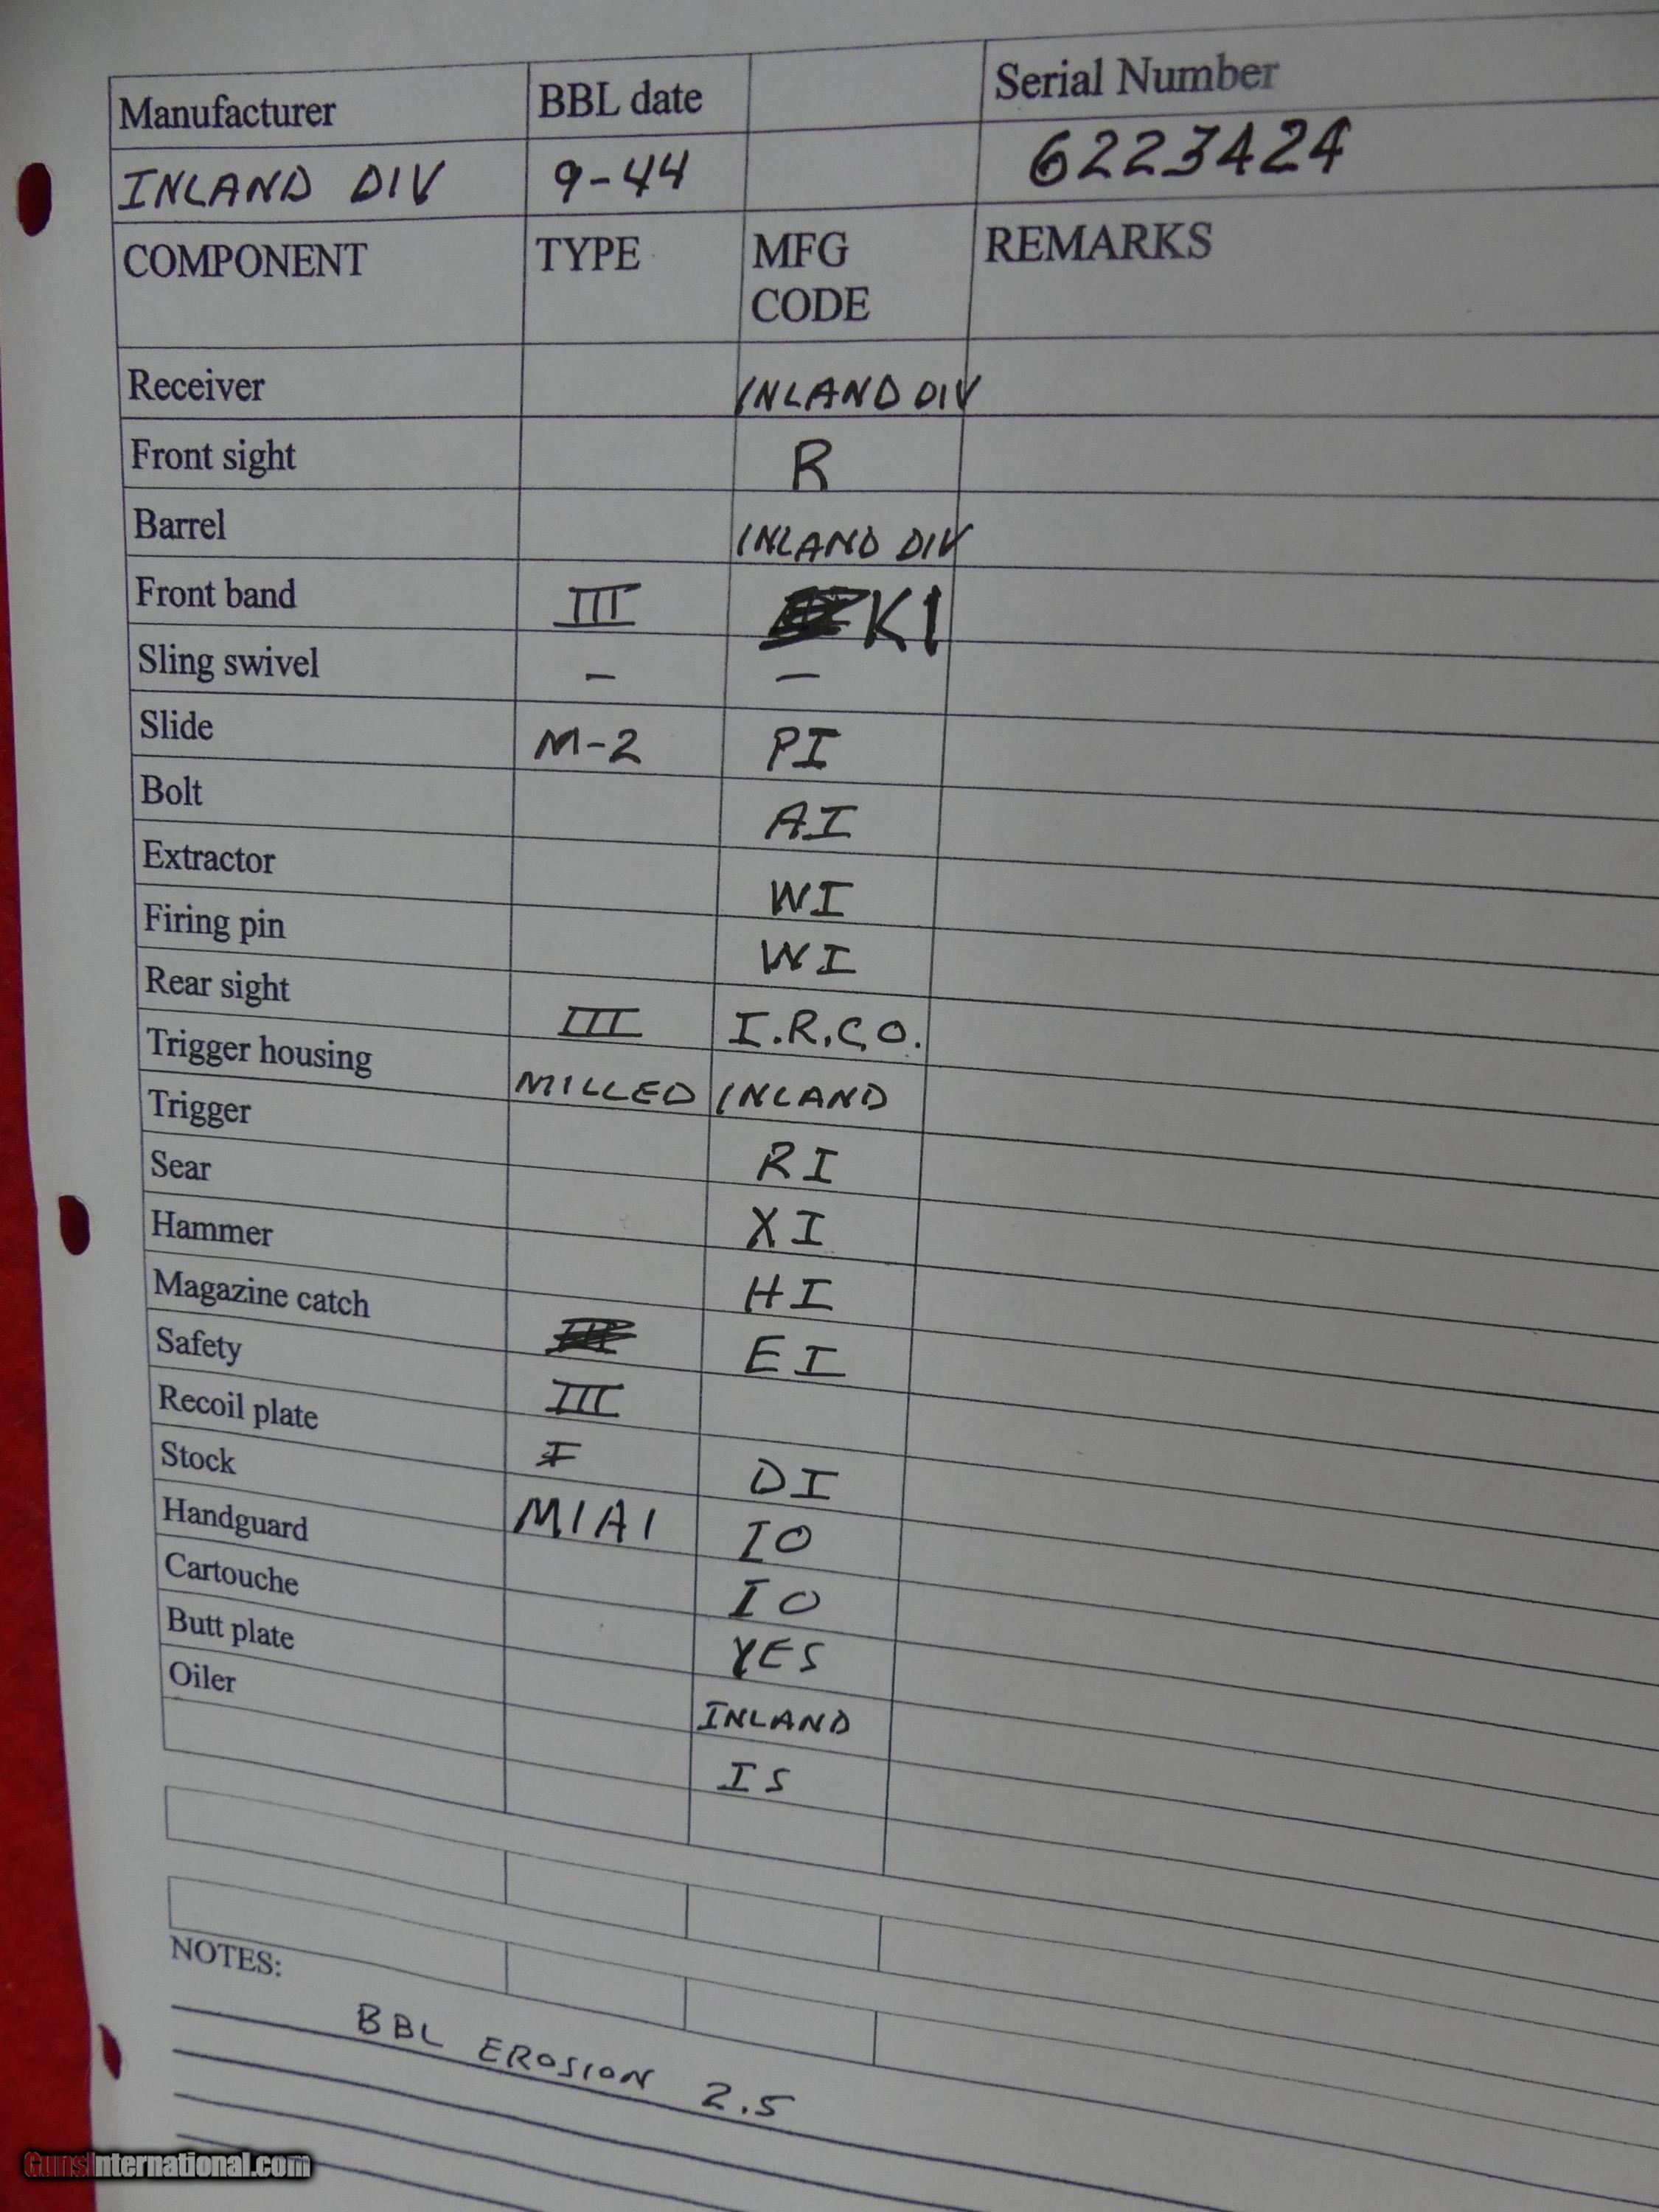 Manufacturer BBL date Serial Number
INLAND DIV 9-44 6223424
COMPONENT TYPE MFG CODE REMARKS
Receiver INLAND DIV
Front sight R
Barrel INLAND DIV
Front band III KI
Sling swivel – –
Slide M-2 PI
Bolt AI
Extractor WI
Firing pin WI
Rear sight III I.R.CO.
Trigger housing MILLED INLAND
Trigger RI
Sear XI
Hammer HI
Magazine catch EI
Safety III
Recoil plate DI
Stock M1A1 IO
Handguard IO
Cartouche YES
Butt plate INLAND
Oiler IS
NOTES:
BBL EROSION 2.5
GunsInternational.com